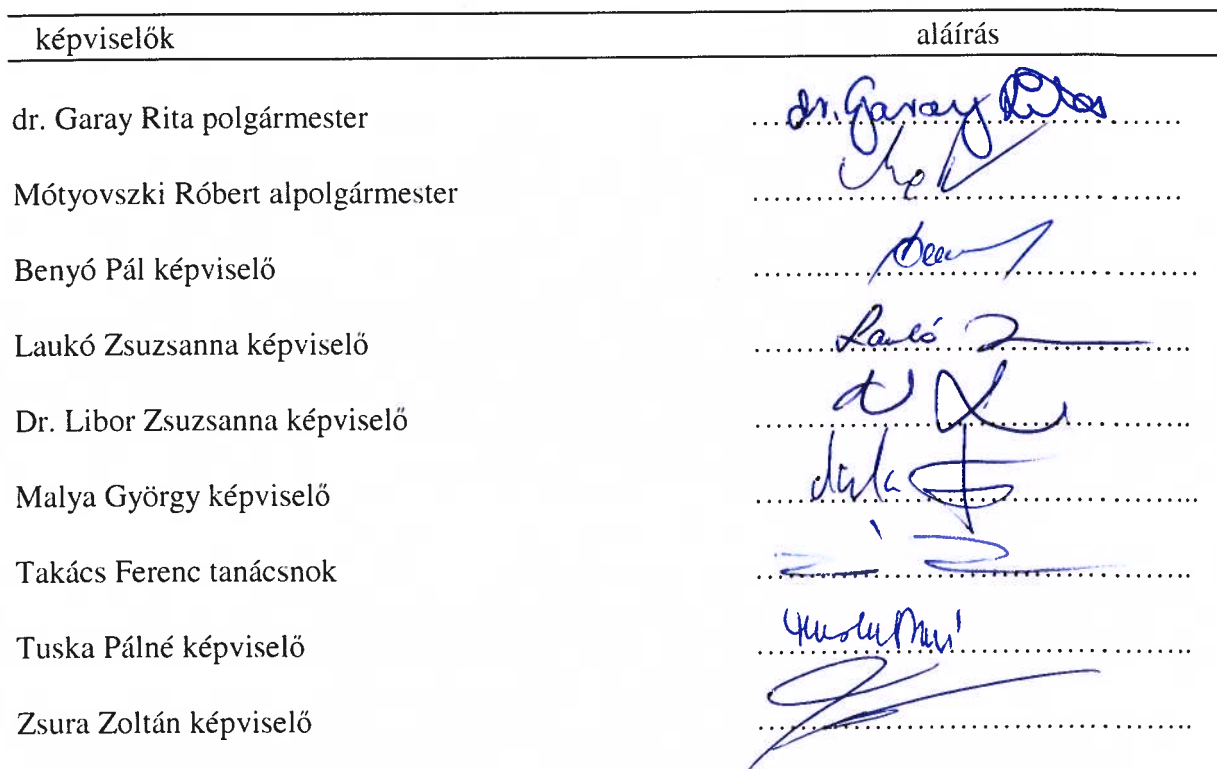 képviselők aláírás
dr. Garay Rita polgármester dr. Garay Rita
Mótyovszki Róbert alpolgármester
Benyó Pál képviselő
Laukó Zsuzsanna képviselő Laukó
Dr. Libor Zsuzsanna képviselő
Malya György képviselő
Takács Ferenc tanácsnok
Tuska Pálné képviselő
Zsura Zoltán képviselő